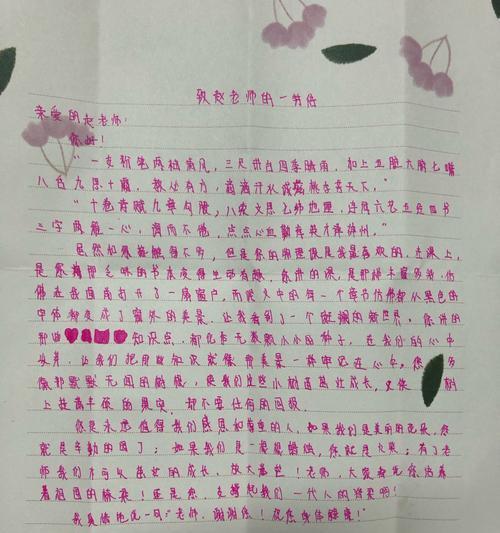 致赵老师的一封信
亲爱的赵老师：
你好！
"一支粉笔两袖清风，三尺讲台四季晴雨，加上五脏六腑七嘴
八舌九思十霜，教必有方，滴滴汗水诚滋桃李芳天下。"
"十卷诗赋九章勾股，八索文思七纬地理，连同六艺五经四书
三字两雅一心，诲而不倦，点点心血勤育英才泽神州。"
虽然如果接触得不多，但是你的物理课是我最喜欢的，在课上，
是你将那乏味的书本变得生动有趣，你讲的课，是那样丰富多彩，仿
佛在我面前打开了一扇窗户，而课文中的每一个章节仿佛都从黑色的
印刷都变成了窗外的美景，让我看到了一个斑斓的新世界。你讲的
那些知识点，都化作无数颗小小的种子，在我们的心中
发芽，让我们把用的知识就像那美景一样牢记在心中，您
像那默默无闻的树根，使我们这些小树茁壮成长，又使树
上挂满丰硕的果实，却不要任何的回报。
你是永远值得我们感恩和尊重的人，如果我们是美丽的花朵，您
就是辛勤的园丁；如果我们是一根根蜡烛，你就是火柴；有了老
师我们才可以茁壮的成长，放大光芒！老师，大家都说你培养
着祖国的栋梁！正是您，支撑起我们一代人的脊梁啊！
我真情地说一句："老师，谢谢您！祝您身体健康！"